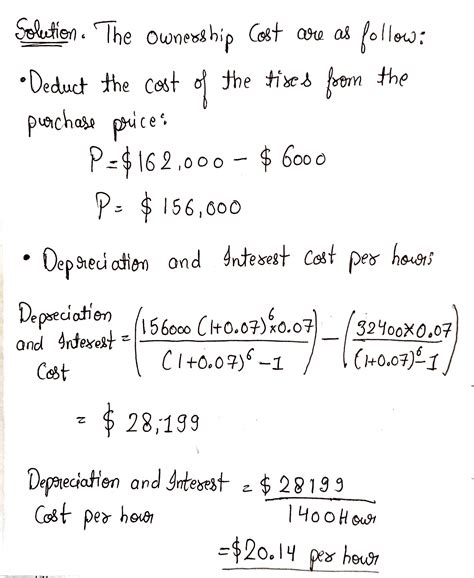 Solution. The ownership Cost are as follow:
• Deduct the cost of the tires from the
purchase price:
P = $162,000 - $ 6000
P = $ 156,000
• Depreciation and Interest Cost per hour:
Depreciation and Interest Cost = (156000 (1+0.07)^6 × 0.07 / (1+0.07)^6 - 1) - (32400×0.07 / (1+0.07)^6 - 1)
= $ 28,199
Depreciation and Interest Cost per hour = $ 28199 / 1400 Hour
= $20.14 per hour